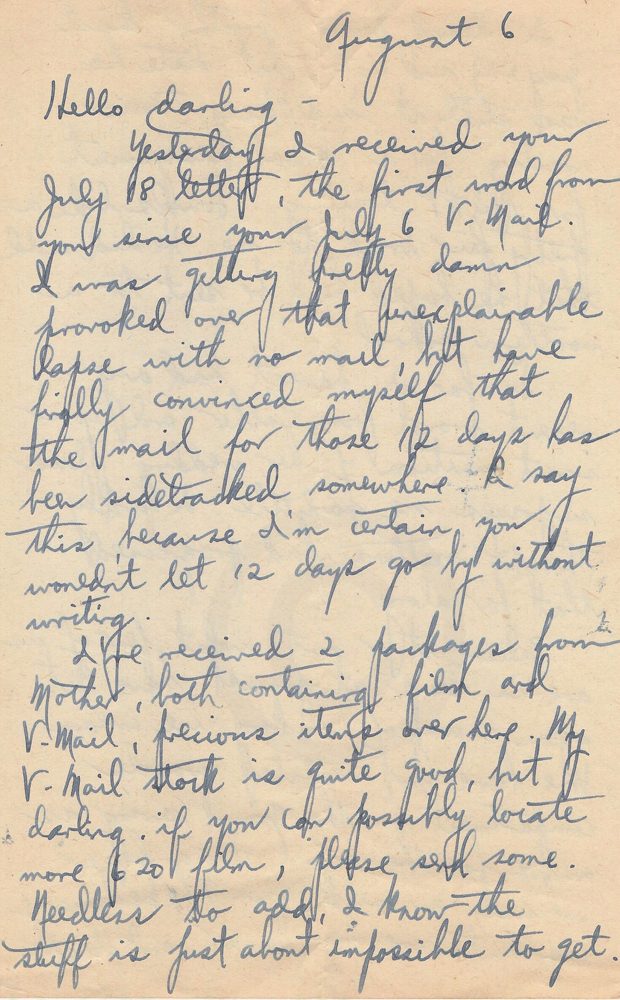 August 6
Hello darling -
Yesterday I received your
July 18 letter, the first word from
you since your July 6 V-Mail.
I was getting pretty damn
provoked over that unexplainable
lapse with no mail, but have
finally convinced myself that
the mail for those 12 days has
been sidetracked somewhere. I say
this because I'm certain you
wouldn't let 12 days go by without
writing.
I've received 2 packages from
Mother, both containing film and
V-Mail, precious items over here. My
V-Mail stock is quite good, but
darling. if you can possibly locate
more 620 film, please send some.
Needless to add, I know the
stuff is just about impossible to get.